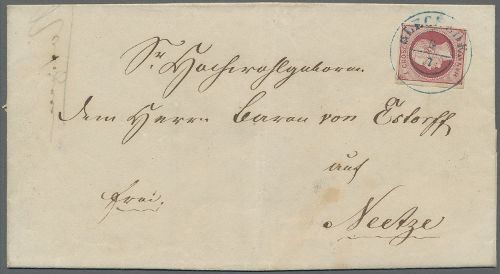 BLECKEDE
Sr. Hochwohlgeborn.
dem Herrn Baron von Estorff
auf
frei.
Neetze